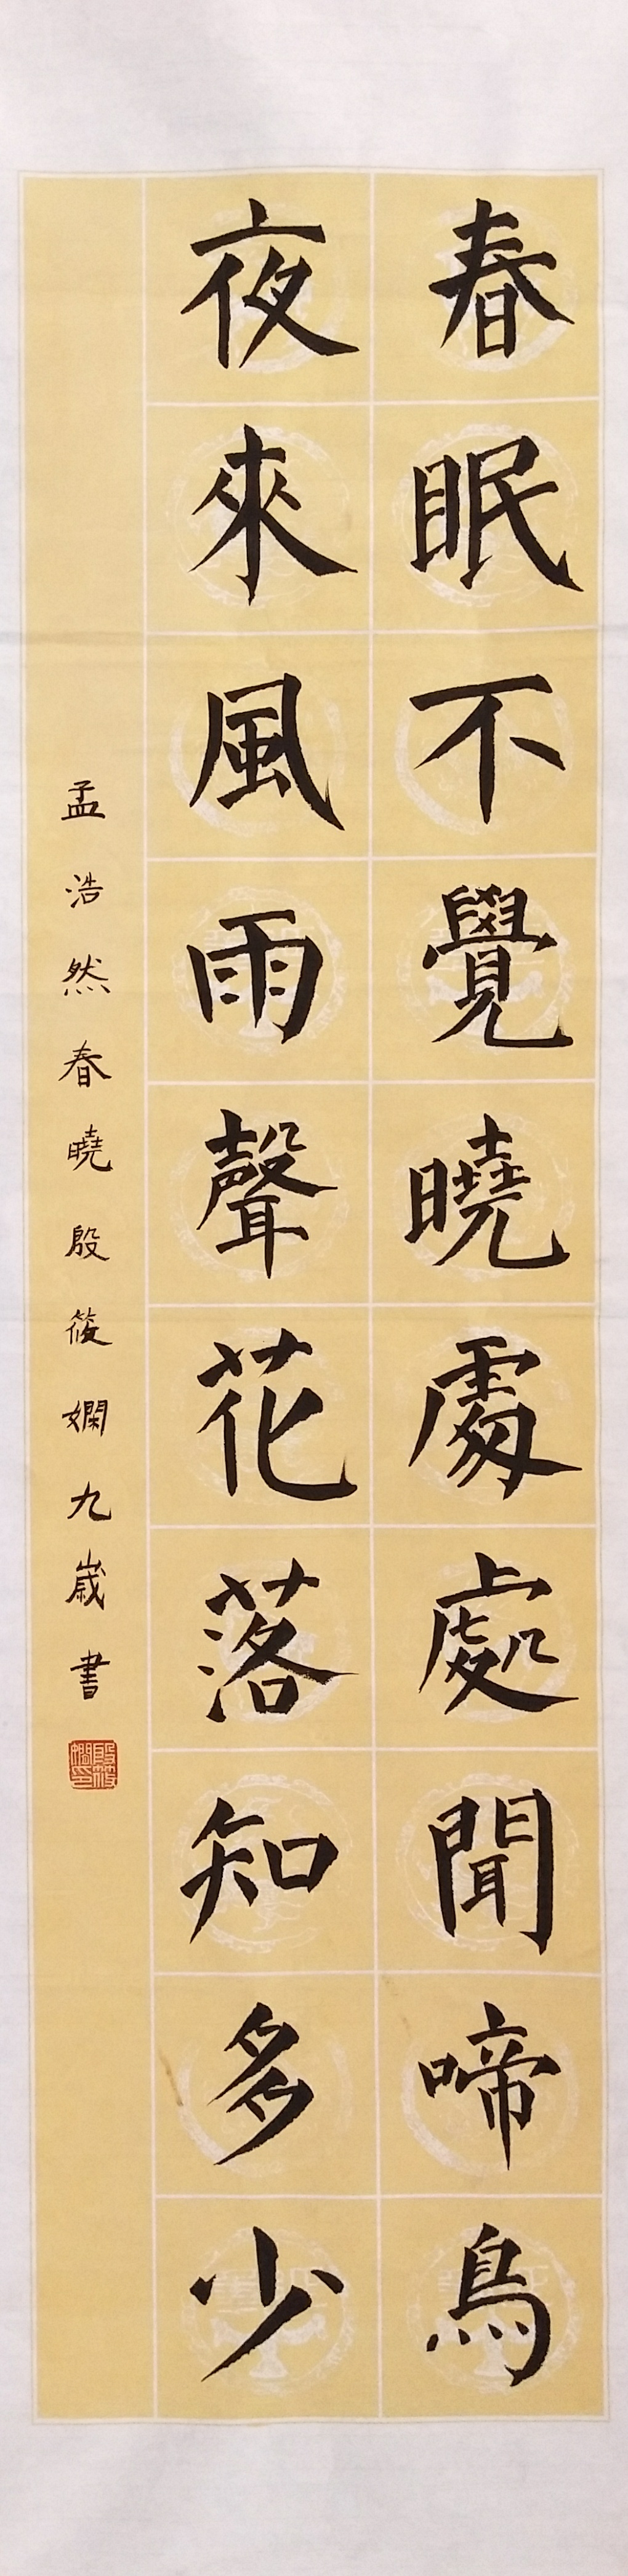 春眠不覺曉處處聞啼鳥
夜來風雨聲花落知多少
孟浩然春曉殷筱嫻九歲書
殷筱嫻印